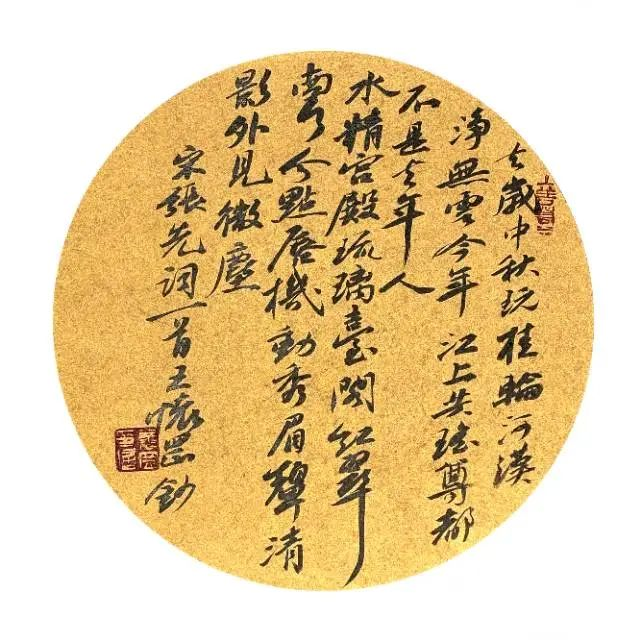 去歲中秋玩桂輪河漢
淨無雲今年江上共瑤尊都
不是去年人
水精宮殿琉璃臺閣紅翠
兩行分點唇機動秀眉顰清
影外見微塵
宋張先詞一首王懷鈔